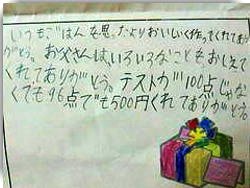 いつもごはんを思ったよりおいしく作ってくれてあり
がとう。お父さんは、いろいろなこともおしえて
くれてありがとう。テストが100点じゃな
くても96点でも500円くれてありがとう